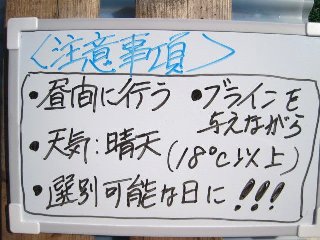 〈注意事項〉
・昼間に行う
・ブラインを
与えながら
・天気:晴天(18℃以上)
・選別可能な日に!!!